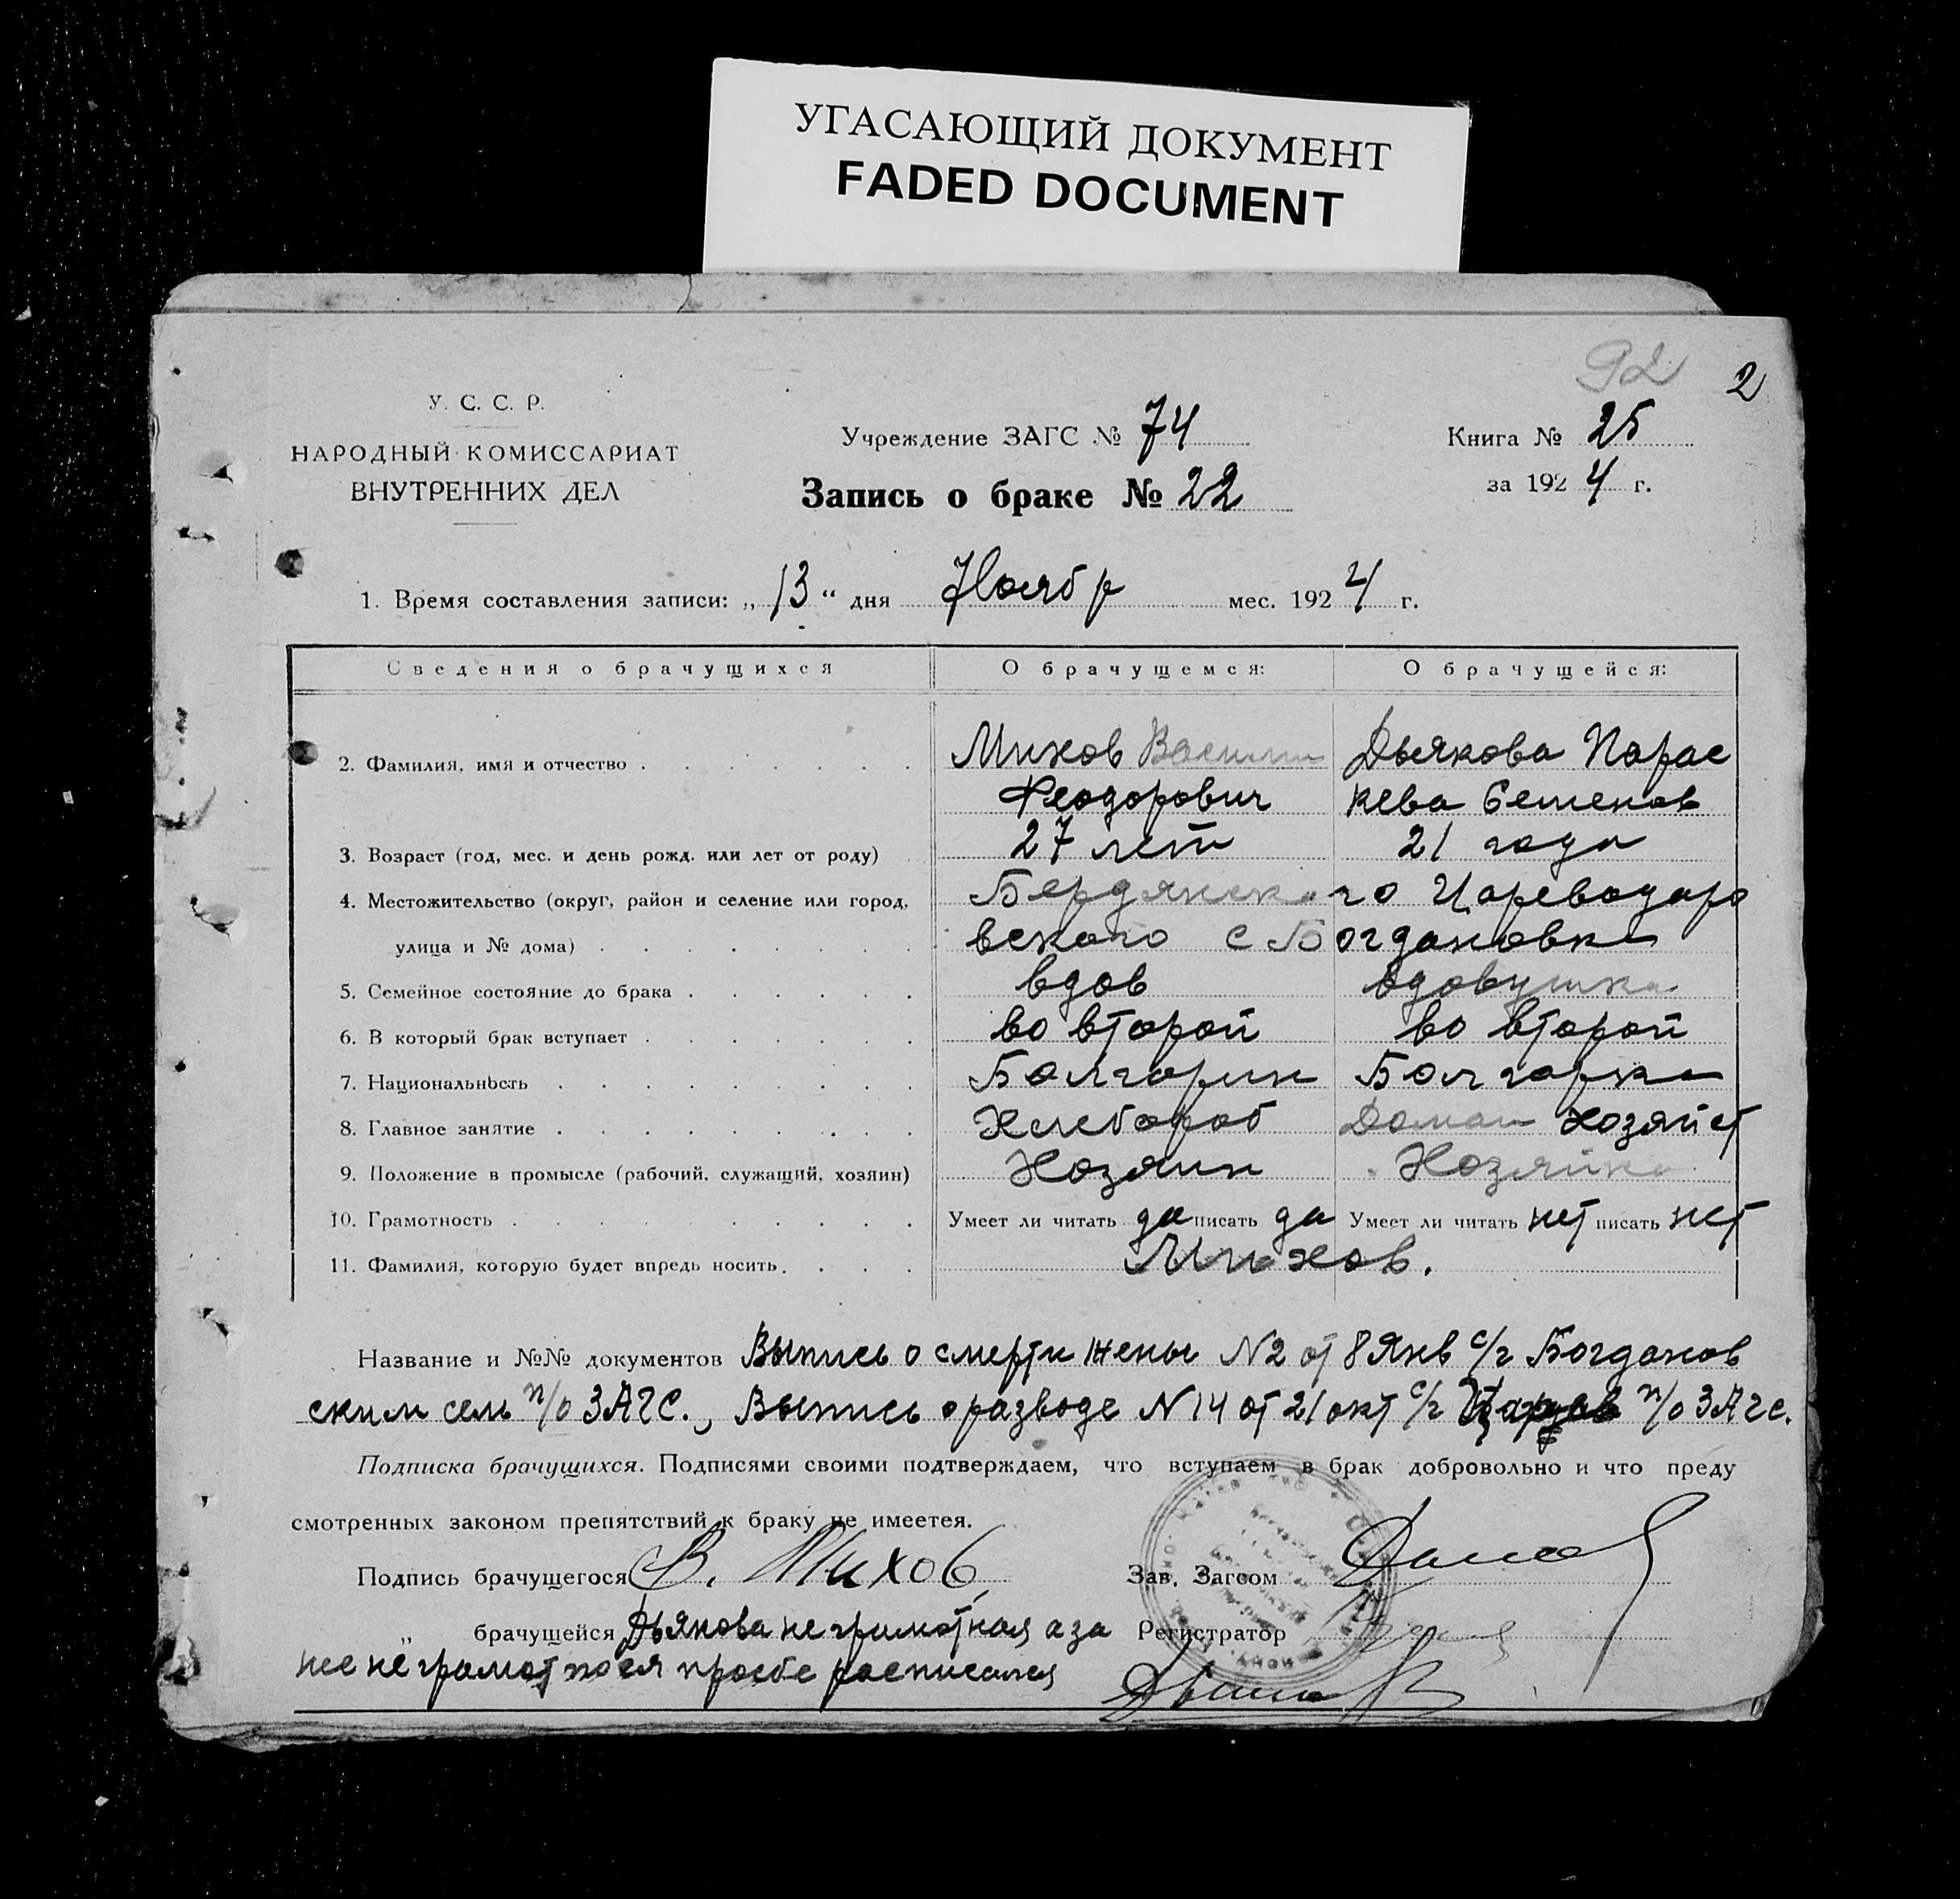 УГАСАЮЩИЙ ДОКУМЕНТ
FADED DOCUMENT
92 2
У. С. С. Р.
НАРОДНЫЙ КОМИССАРИАТ
ВНУТРЕННИХ ДЕЛ
Учреждение ЗАГС № 74
Запись о браке № 22
Книга № 25
за 1924 г.
1. Время составления записи: „13“ дня Ноябр мес. 1924 г.
Сведения о брачущихся О брачущемся: О брачущейся:
2. Фамилия, имя и отчество Михов Василии Дьякова Парас
Феодорович кева Семенов
3. Возраст (год, мес. и день рожд. или лет от роду) 27 лет 21 года
4. Местожительство (округ, район и селение или город, Бердянского Цареводаро
улица и № дома) вского с Богдановка
5. Семейное состояние до брака вдов
6. В который брак вступает во второй во второй
7. Национальность Болгарин Болгарка
8. Главное занятие Хлебороб Домаш хозяйст
9. Положение в промысле (рабочий, служащий, хозяин) Хозяин Хозяйка
10. Грамотность Умеет ли читать да писать да Умеет ли читать нет писать нет
11. Фамилия, которую будет впредь носить Михов.
Название и №№ документов Выпись о смерти жены N2 от 8 Янв с/г Богданов
ским сель п/о ЗАГС., Выпись о разводе N 14 от 21 окт с/г п/о ЗАГС.
Подписка брачущихся. Подписями своими подтверждаем, что вступаем в брак добровольно и что преду
смотренных законом препятствий к браку не имеется.
Подпись брачущегося В. Михов Зав. Загсом
„ брачущейся Дьякова неграмотная а за Регистратор
нее неграмот по ея прозбе росписался